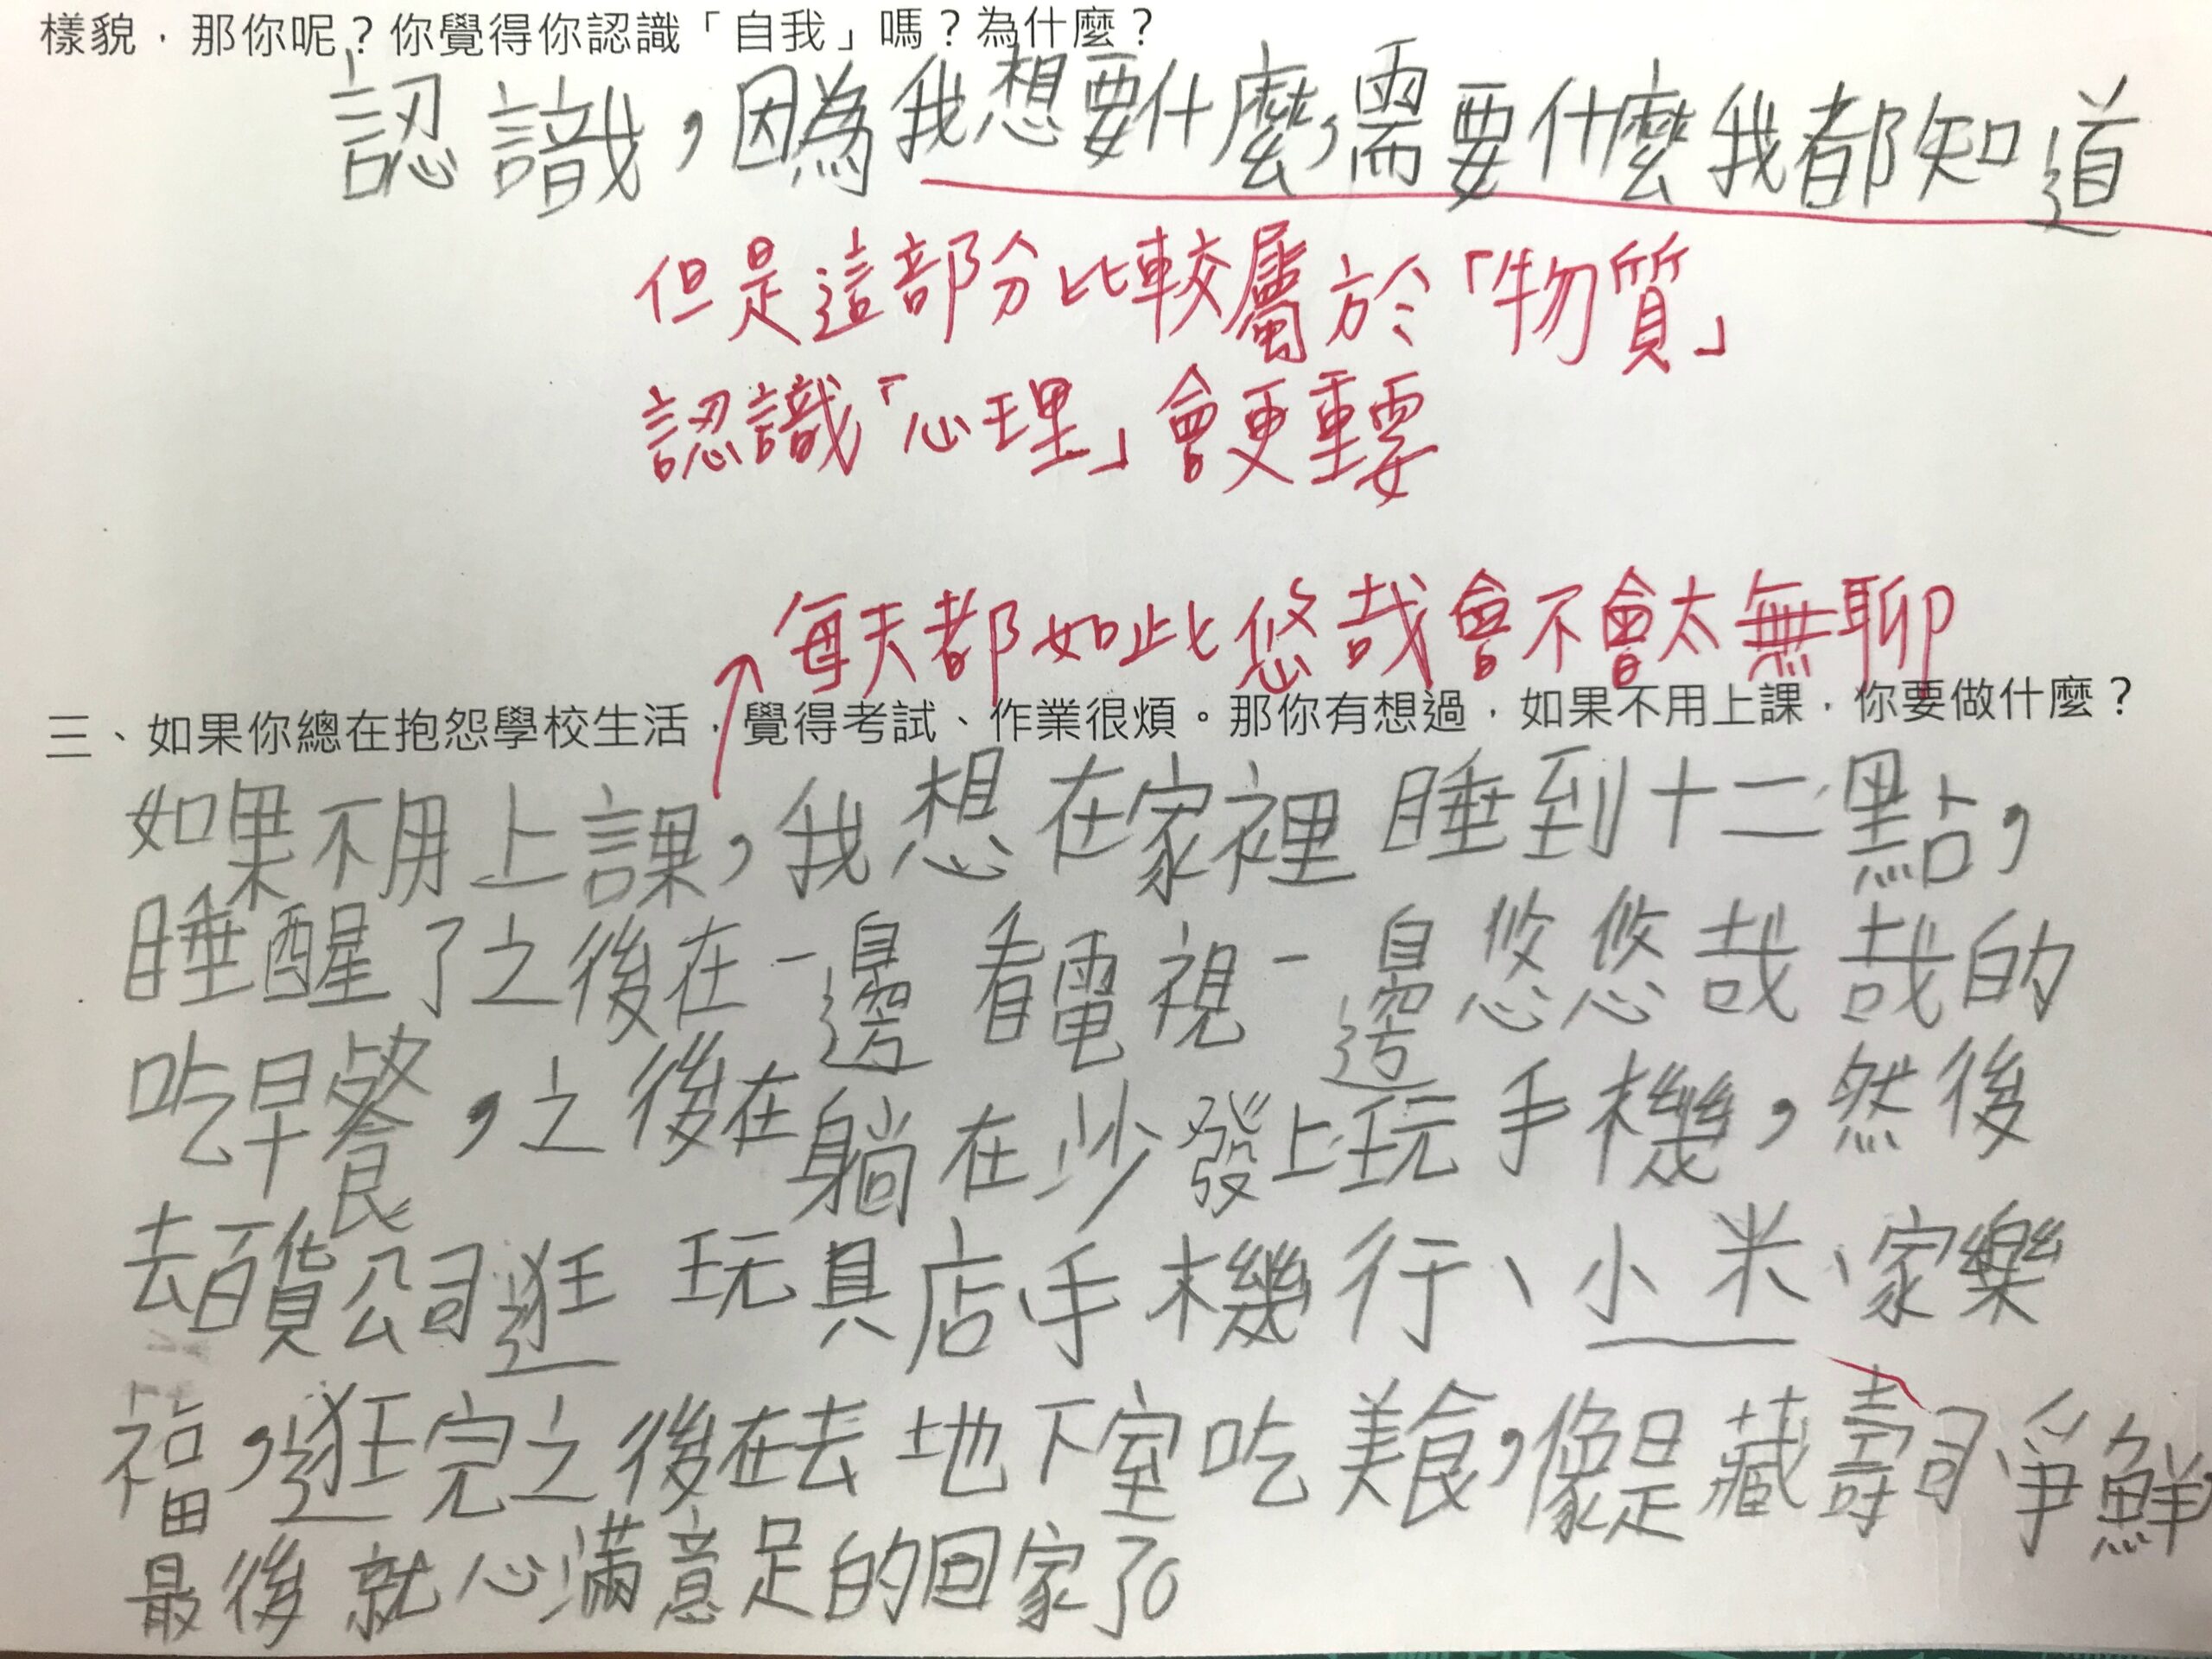 樣貌，那你呢？你覺得你認識「自我」嗎？為什麼？
認識，因為我想要什麼，需要什麼我都知道
但是這部分比較屬於「物質」
認識「心理」會更重要
每天都如此悠哉會不會太無聊
三、如果你總在抱怨學校生活，覺得考試、作業很煩。那你有想過，如果不用上課，你要做什麼？
如果不用上課，我想在家裡睡到十二點，
睡醒了之後在一邊看電視一邊悠悠哉哉的
吃早餐，之後在躺在沙發上玩手機，然後
去百貨公司逛玩具店、手機行、小米、家樂
福，逛完之後在去地下室吃美食，像是藏壽司、爭鮮
最後就心滿意足的回家了。